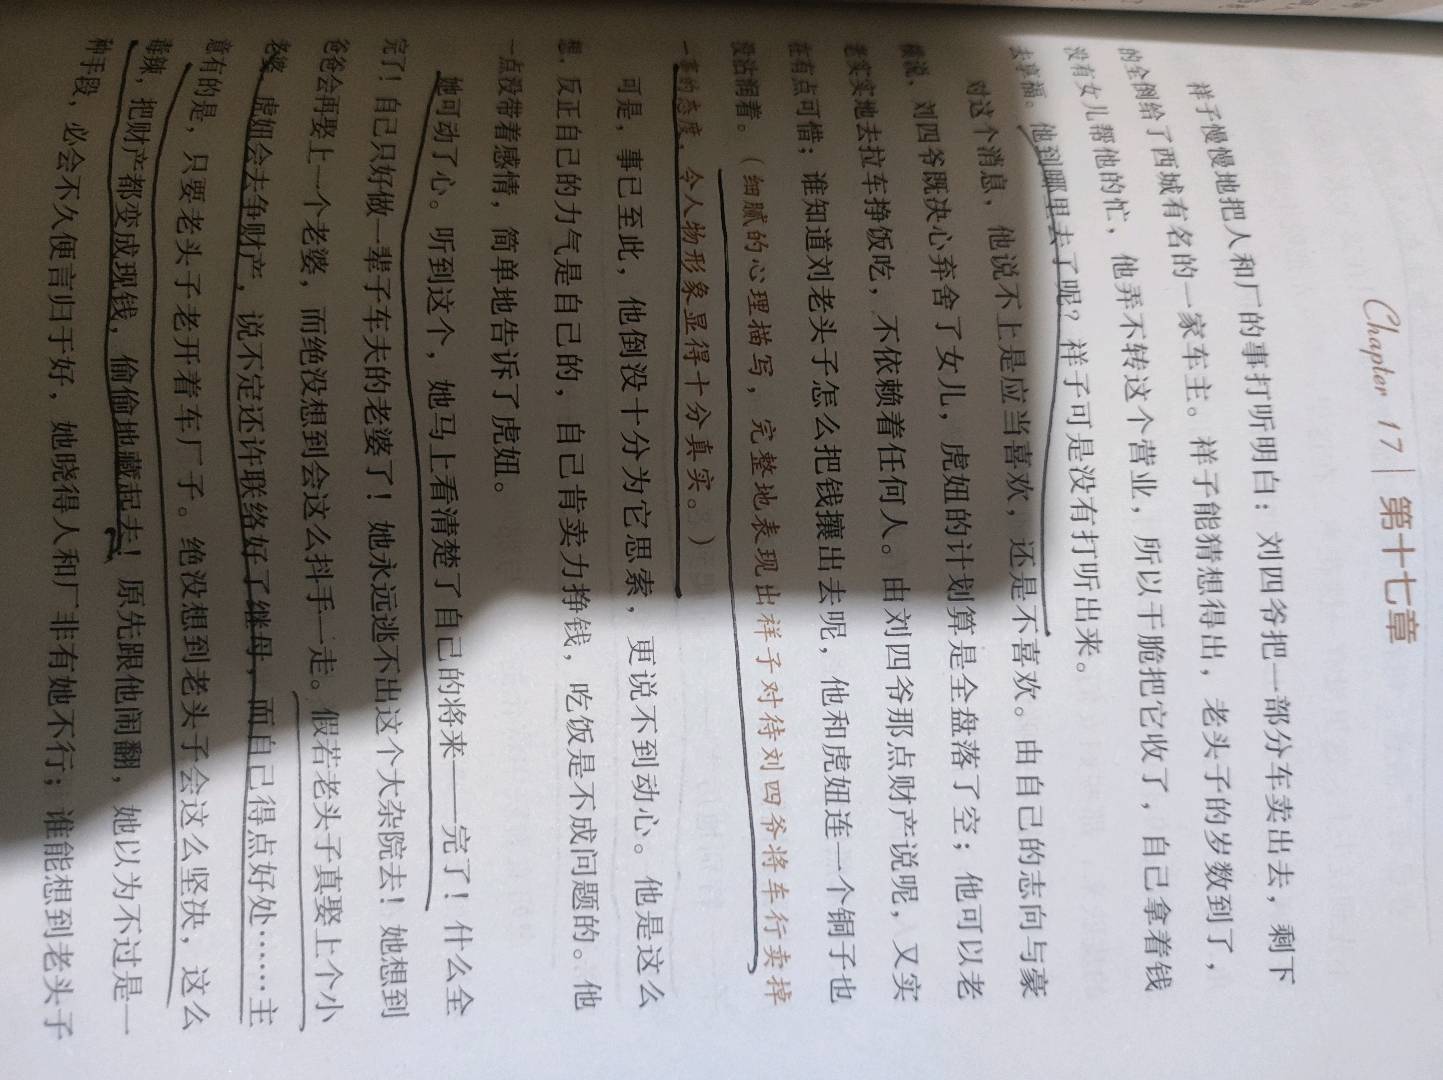 Chapter 17 | 第十七章
祥子慢慢地把人和厂的事打听明白：刘四爷把一部分车卖出去，剩下
的全倒给了西城有名的一家车主。祥子能猜想得出，老头子的岁数到了，
没有女儿帮他的忙，他弄不转这个营业，所以干脆把它收了，自己拿着钱
去享福。他到哪里去了呢？祥子可是没有打听出来。
对这个消息，他说不上是应当喜欢，还是不喜欢。由自己的志向与豪
横说，刘四爷既决心弃舍了女儿，虎妞的计划算是全盘落了空；他可以老
老实实地去拉车挣饭吃，不依赖着任何人。由刘四爷那点财产说呢，又实
在有点可惜；谁知道刘老头子怎么把钱攘出去呢，他和虎妞连一个铜子也
没沾润着。（细腻的心理描写，完整地表现出祥子对待刘四爷将车行卖掉
一事的态度，令人物形象显得十分真实。）
可是，事已至此，他倒没十分为它思索，更说不到动心。他是这么
想，反正自己的力气是自己的，自己肯卖力挣钱，吃饭是不成问题的。他
一点没带着感情，简单地告诉了虎妞。
她可动了心。听到这个，她马上看清楚了自己的将来——完了！什么全
完了！自己只好做一辈子车夫的老婆了！她永远逃不出这个大杂院去！她想到
爸爸会再娶上一个老婆，而绝没想到会这么抖手一走。假若老头子真娶上个小
老婆，虎妞会去争财产，说不定还许联络好了继母，而自己得点好处……主
意有的是，只要老头子老开着车厂子。绝没想到老头子会这么坚决，这么
毒辣，把财产都变成现钱，偷偷地藏起去！原先跟他闹翻，她以为不过是一
种手段，必会不久便言归于好，她晓得人和厂非有她不行；谁能想到老头子